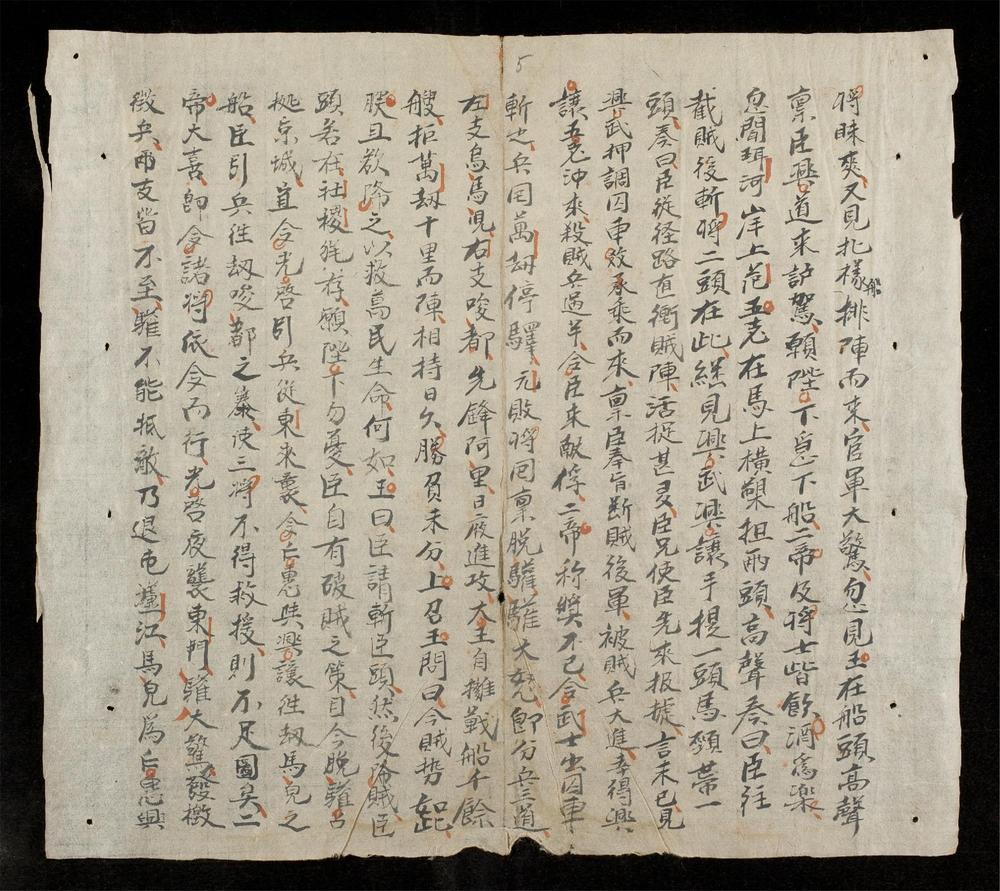 將昧爽又見北樣船排陣而來官軍大驚忽見王在船頭高聲
稟臣興道來訝駕願陛下息下船二帝及將士皆飲酒為樂
息間珥河岸上范五老在馬上橫槊担兩頭高聲奏曰臣往
截賊後斬將二頭在此継見興武興讓手提一頭馬頷帶一
頭奏曰臣從径路直衝賊陣活捉甚多臣兄使臣先來报捷言未已見
興武押調囚車数承乘而來稟臣奉旨断賊後軍被賊兵大進幸得興
讓五老沖來殺賊兵過半令臣來献俘二帝称奬不已令武士出囚車
斬之兵囬萬劫停驛元敗將囬稟脱驩驩大怒即分兵三道
左支烏馬児右支唆都先鋒阿里日夜進攻大王自擁戰船千餘
艘拒萬劫十里而陣相持日久勝負未分上召王問曰今賊势起
朕且欲降之以救萬民生命何如王曰臣請斬臣頭然後降賊臣
頭若在社稷猶存願陛下勿憂臣自有破賊之策目今脱驩占
拠京城宜令光啓引兵從東來襲令丘恵與興讓徃劫馬兒之
船臣引兵徃劫唆都之寨使三將不得救援則不足圖矣二
帝大喜即令諸將依令而行光啓夜襲東門驩大驚發檄
徴兵兩支皆不至驩不能抵敵乃退屯瀘江馬兒為丘恵興
5